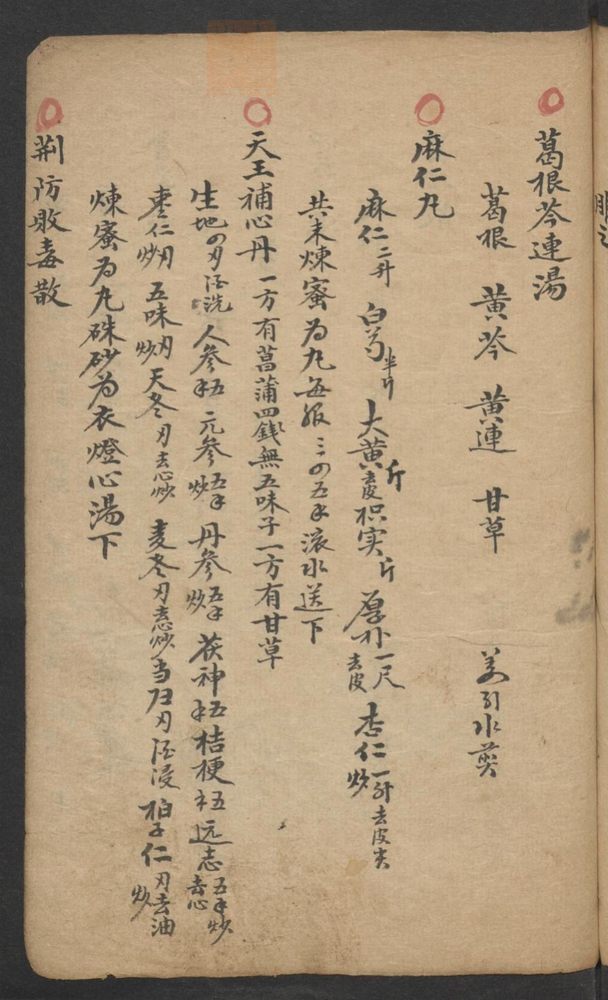 葛根芩連湯
葛根 黄芩 黄連 甘草 姜引水煎
麻仁丸
麻仁二升 白芍半斤 大黄斤去皮 枳实斤 厚朴一尺去皮 杏仁一升去皮尖炒
共末煉蜜為丸每服三四五分滚水送下
天王補心丹 一方有菖蒲四錢無五味子一方有甘草
生地四刃酒洗 人參 五 元參五 炒 丹參五 炒 茯神 五 桔梗 五 远志五 炒去心
枣仁刃炒 五味刃炒 天冬刃去心炒 麦冬刃去心炒 当归刃酒浸 柏子仁刃去油炒
煉蜜為丸硃砂為衣燈心湯下
荆防敗毒散